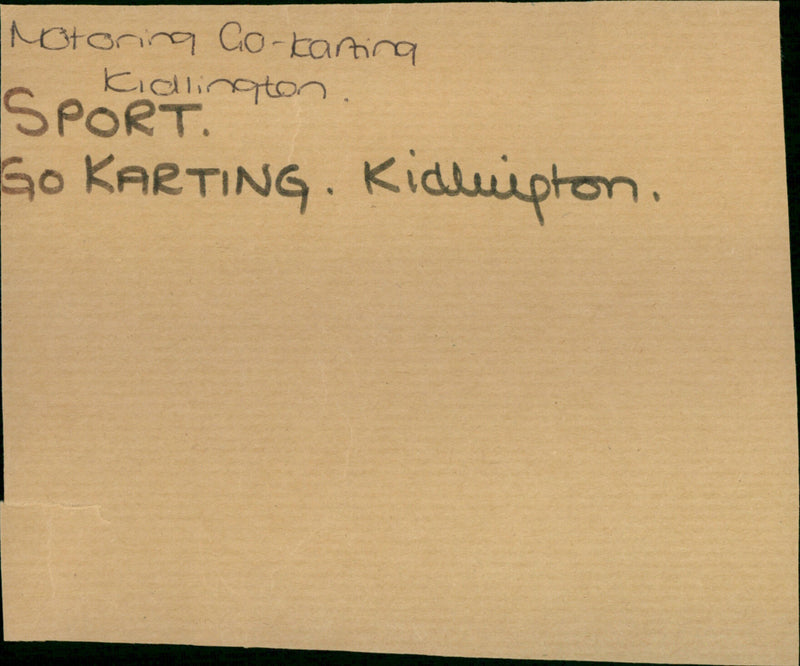 Motoring Go-karting
Kidlington.
SPORT.
GO KARTING. Kidlington.